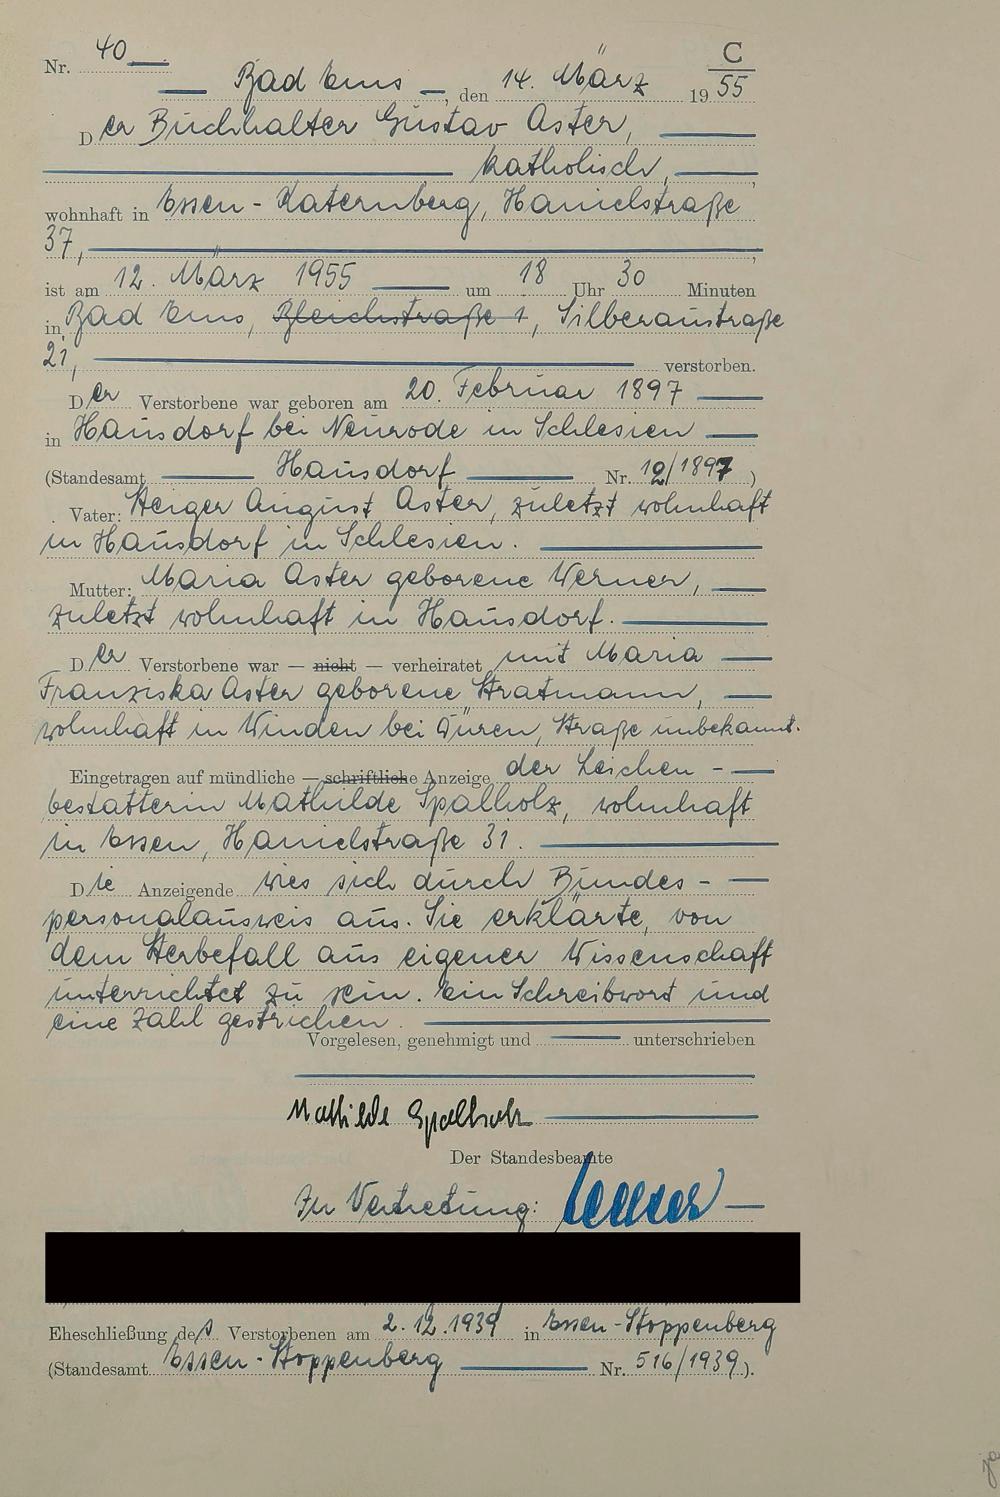 C
Nr. 40
Bad Ems, den 14. März 1955
Der Buchhalter Gustav Aster,
katholisch,
wohnhaft in Essen-Katernberg, Hanielstraße
37,
ist am 12. März 1955 um 18 Uhr 30 Minuten
in Bad Ems, Bleichstraße 1, Silberaustraße
21, verstorben.
Der Verstorbene war geboren am 20. Februar 1897
in Hausdorf bei Neurode in Schlesien
(Standesamt Hausdorf Nr. 12/1897)
Vater: Steiger August Aster, zuletzt wohnhaft
in Hausdorf in Schlesien.
Mutter: Maria Aster geborene Werner,
zuletzt wohnhaft in Hausdorf.
Der Verstorbene war — nicht — verheiratet mit Maria
Franziska Aster geborene Stratmann,
wohnhaft in Winden bei Düren, Straße unbekannt.
Eingetragen auf mündliche — schriftliche Anzeige der Leichen-
bestatterin Mathilde Spalholz, wohnhaft
in Essen, Hanielstraße 31.
Die Anzeigende wies sich durch Bundes-
personalausweis aus. Sie erklärte, von
dem Sterbefall aus eigener Wissenschaft
unterrichtet zu sein. Ein Schreibwort und
eine Zahl gestrichen.
Vorgelesen, genehmigt und unterschrieben
Mathilde Spalholz
Der Standesbeamte
In Vertretung:
Eheschließung des Verstorbenen am 2.12.1939 in Essen-Stoppenberg
(Standesamt Essen-Stoppenberg Nr. 516/1939).